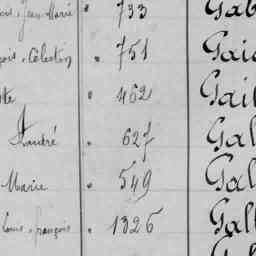 Jean Marie 733 Gab
Célestin 751 Gai
462 Gail
André 627 Gal
Marie 549 Gal
Louis françois 1326 Gall